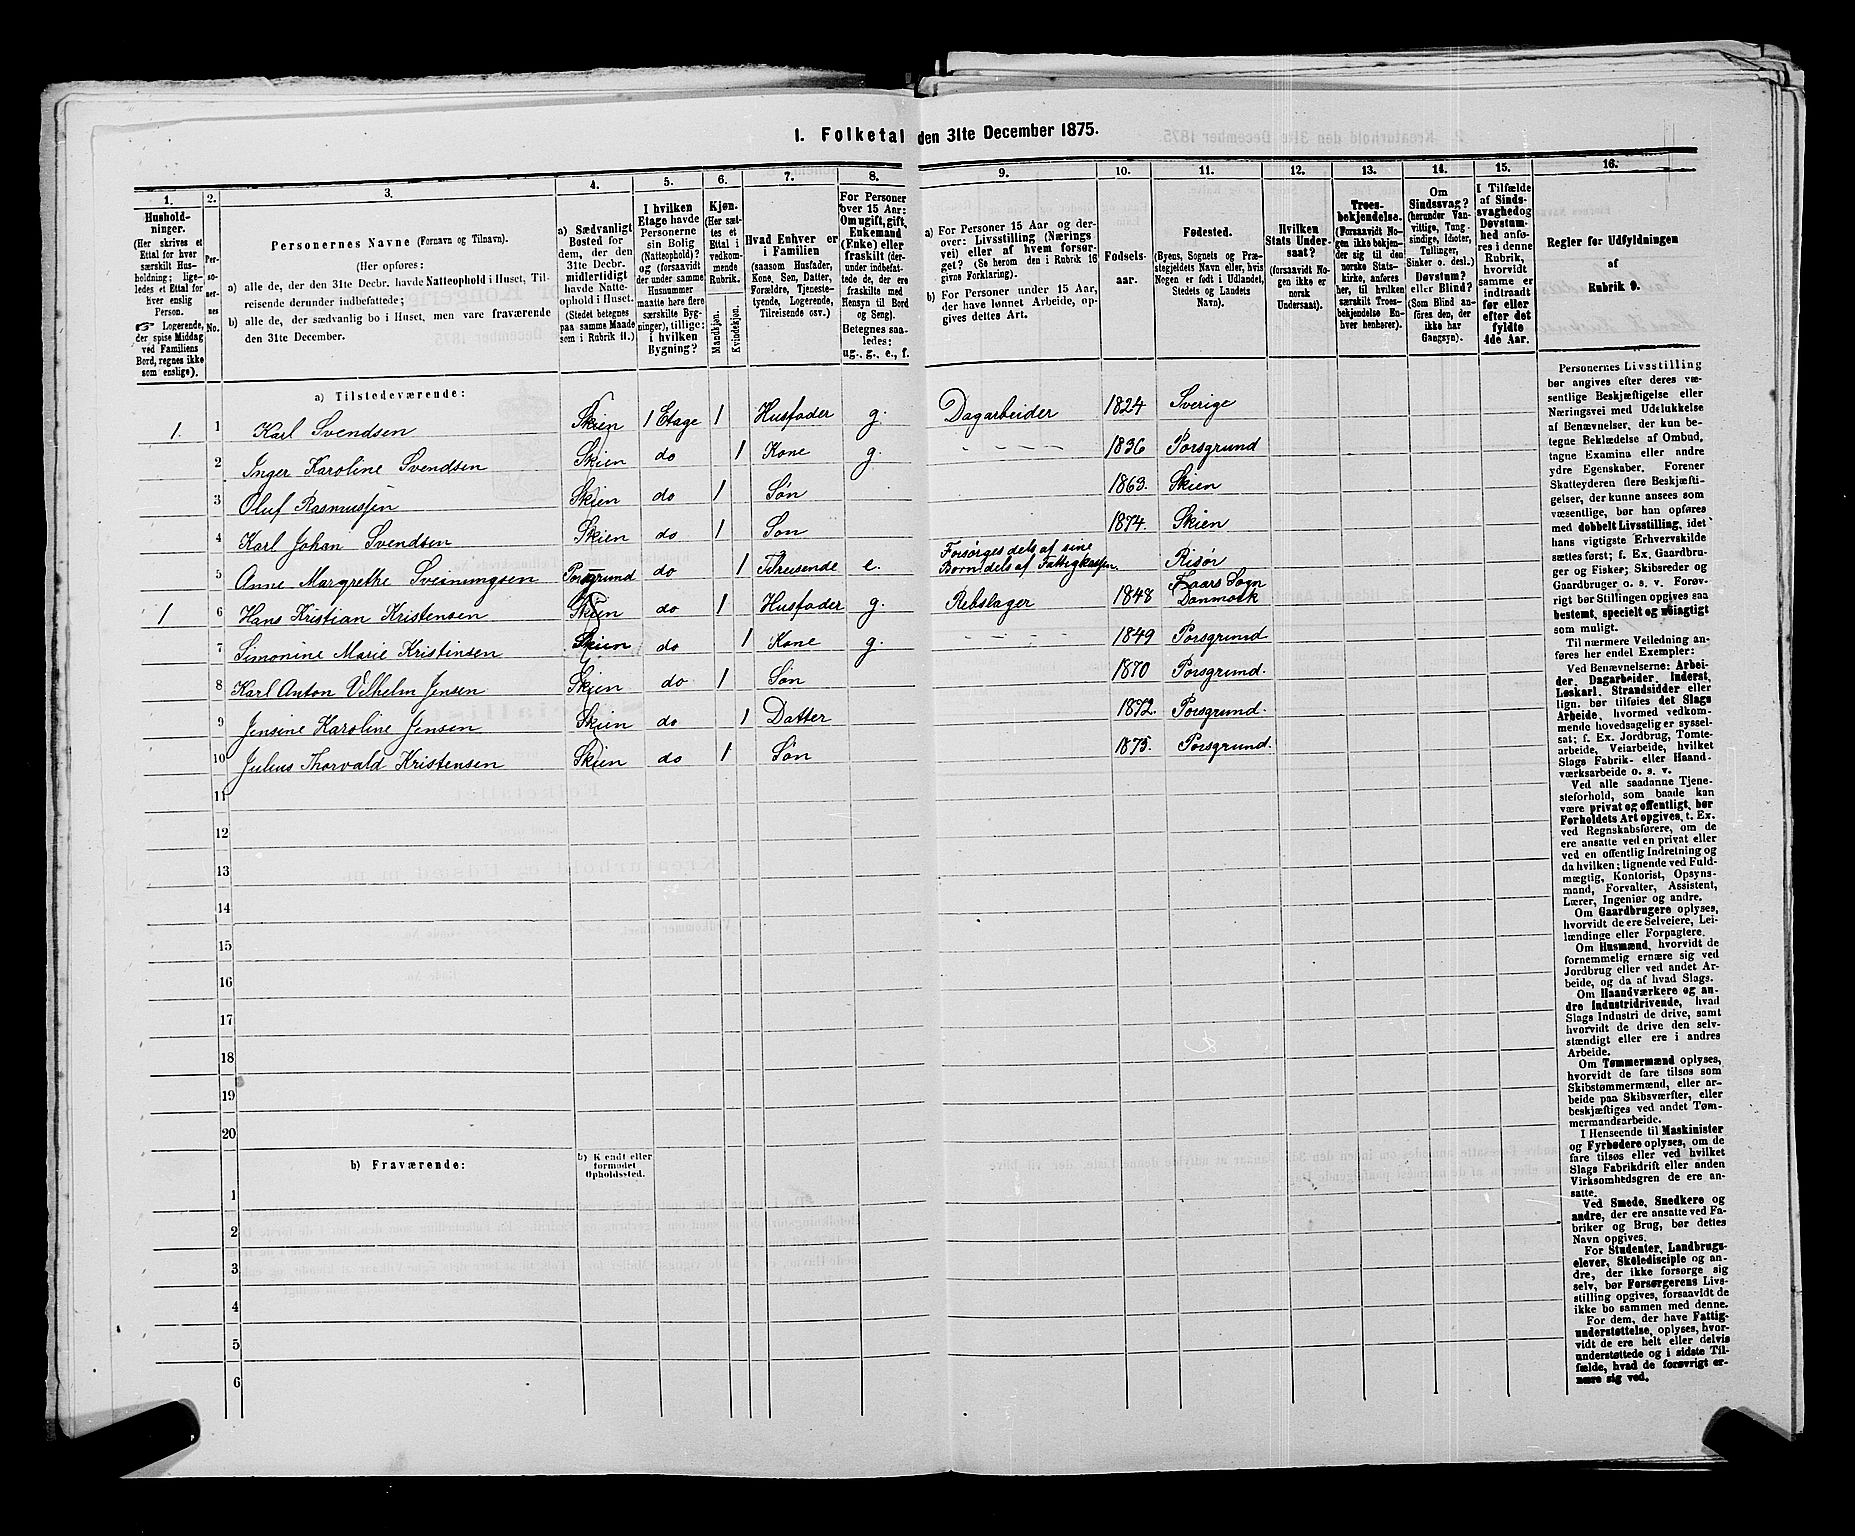 1. Folketal den 31te December 1875.
1. 2. 3. 4. 5. 6. 7. 8. 9. 10. 11. 12. 13. 14. 15. 16.
Hushold-
ninger.
(Her skrives et
Ettal for hver
særskilt Hus-
holdning; lige-
ledes et Ettal for
hver enslig
Person.
☞ Logerende,
der spise Middag
ved Familiens
Bord, regnes ikke
som enslige).
Per-
so-
ner-
nes
No.
Personernes Navne (Fornavn og Tilnavn).
(Her opføres:
a) alle de, der den 31te Decbr. havde Natteophold i Huset, Til-
reisende derunder indbefattede;
b) alle de, der sædvanlig bo i Huset, men vare fraværende
den 31te December.
a) Sædvanligt
Bosted for
dem, der den
31te Decbr.
midlertidigt
havde Natte-
ophold i Huset.
(Stedet betegnes
paa samme Maade
som i Rubrik 11.)
I hvilken
Etage havde
Personerne
sin Bolig
(Natteophold)?
og (forsaavidt
der under samme
Husnummer
maatte høre flere
særskilte Byg-
ninger), tillige:
i hvilken
Bygning?
Kjøn.
(Her sæt-
tes et
Ettal i
vedkom-
mende
Rubrik.
Mandkjøn.
Kvindekjøn.
Hvad Enhver er
i Familien
(saasom Husfader,
Kone, Søn, Datter,
Forældre, Tjeneste-
tyende, Logerende,
Tilreisende osv.)
For Personer
over 15 Aar:
Om ugift, gift,
Enkemand
(Enke) eller
fraskilt (der-
under indbefat-
tede de, der ere
fraskilte med
Hensyn til Bord
og Seng).
Betegnes saa-
ledes:
ug., g., e., f.
a) For Personer 15 Aar og der-
over: Livsstilling (Nærings-
vei) eller af hvem forsør-
get? (Se herom den i Rubrik 16
givne Forklaring).
b) For Personer under 15 Aar,
der have lønnet Arbeide, op-
gives dettes Art.
Fødsels-
aar.
Fødested.
(Byens, Sognets og Præ-
stegjeldets Navn eller, hvis
Nogen er født i Udlandet,
Stedets og Landets
Navn).
Hvilken
Stats Under-
saat?
(forsaavidt No-
gen ikke er
norsk
Undersaat).
Troes-
bekjendelse.
(Forsaavidt No-
gen ikke bekjen-
der sig til den
norske Stats-
kirke, anføres
her, til hvilken
særskilt Troes-
bekjendelse En-
hver henhører).
Om
Sindssvag?
(herunder Van-
vittige, Tung-
sindige, Idioter,
Tullinger,
Sinker o. desl.)
Døvstum?
eller Blind?
(Som Blind an-
føres den, der
ikke har
Gangsyn).
I Tilfælde
af Sinds-
svaghed og
Døvstum-
hed anfø-
res i denne
Rubrik,
hvorvidt
samme er
indtraadt
før eller
efter det
fyldte
4de Aar.
Regler for Udfyldningen
af
Rubrik 9.
a) Tilstedeværende:
1. 1 Karl Svendsen Skien 1 Etage 1 Husfader g. Dagarbeider 1824 Sverige
2 Inger Karoline Svendsen Skien do 1 Kone g. - - - - 1836 Porsgrund
3 Oluf Rasmussen Skien do 1 Søn 1863. Skien
4 Karl Johan Svendsen Skien do 1 Søn 1874. Skien
5 Anne Margrethe Sveinungsen Porsgrund do 1 Tilreisende e. Forsørges dels af sine
Børn dels af Fattigkassen. Risør
1 6 Hans Kristian Kristensen Skien do 1 Husfader g. Rebslager 1848 Faars Sogn
Danmark
7 Simonine Marie Kristinsen Skien do 1 Kone g. - - - - 1849 Porsgrund
8 Karl Anton Vilhelm Jensen Skien do 1 Søn 1870 Porsgrund.
9 Jensine Karoline Jensen Skien do 1 Datter 1872. Porsgrund.
10 Julius Thorvald Kristensen Skien do 1 Søn 1875. Porsgrund.
11
12
13
14
15
16
17
18
19
20
b) Fraværende:
b) Kjendt eller
formodet
Opholdssted.
1
2
3
4
5
6
Personernes Livsstilling
bør angives efter deres væ-
sentlige Beskjæftigelse eller
Næringsvei med Udelukkelse
af Benævnelser, der kun be-
tegne Beklædelse af Ombud,
tagne Examina eller andre
ydre Egenskaber. Forener
Skatteyderen flere Beskjæfti-
gelser, der kunne ansees som
væsentlige, bør han opføres
med dobbelt Livsstilling, idet
hans vigtigste Erhvervskilde
sættes først; f. Ex. Gaardbru-
ger og Fisker; Skibsreder og
Gaardbruger o. s. v. Forøv-
rigt bør Stillingen opgives saa
bestemt, specielt og nøiagtigt
som muligt.
Til nærmere Veiledning an-
føres her endel Exempler:
Ved Benævnelserne: Arbei-
der, Dagarbeider, Inderst,
Løskarl, Strandsidder eller
lign. bør tilføies det Slags
Arbeide, hvormed vedkom-
mende hovedsagelig er syssel-
sat; f. Ex. Jordbrug, Tomte-
arbeide, Veiarbeide, hvilket
Slags Fabrik- eller Haand-
værksarbeide o. s. v.
Ved alle saadanne Tjene-
steforhold, som baade kan
være privat og offentligt, bør
Forholdets Art opgives, t. Ex.
ved Regnskabsførere, om de
ere ansatte ved en privat eller
ved en offentlig Indretning og
da hvilken; lignende ved Fuld-
mægtig, Kontorist, Opsyns-
mand, Forvalter, Assistent,
Lærer, Ingeniør og andre.
Om Gaardbrugere oplyses,
hvorvidt de ere Selveiere, Lei-
lændinge eller Forpagtere.
Om Husmænd, hvorvidt de
fornemmelig ernære sig ved
Jordbrug eller ved andet Ar-
beide, og da af hvad Slags.
Om Haandværkere og an-
dre Industridrivende, hvad
Slags Industri de drive, samt
hvorvidt de drive den selv-
stændigt eller ere i andres
Arbeide.
Om Tømmermænd oplyses,
hvorvidt de fare tilsøs som
Skibstømmermænd, eller ar-
beide paa Skibsværfter, eller
beskjæftiges ved andet Tøm-
mermandsarbeide.
I Henseende til Maskinister
og Fyrbødere oplyses, om de
fare tilsøs eller ved hvilket
Slags Fabrikdrift eller anden
Virksomhedsgren de ere an-
satte.
Ved Smede, Snedkere og
andre, der ere ansatte ved Fa-
briker og Brug, bør dettes
Navn opgives.
For Studenter, Landbrugs-
elever, Skoledisciple og an-
dre, der ikke forsørge sig
selv, bør Forsørgerens Livs-
stilling opgives, forsaavidt de
ikke bo sammen med denne.
For dem, der have Fattig-
understøttelse, oplyses, hvor-
vidt de ere helt eller delvis
understøttede og i sidste Til-
fælde, hvad de forøvrigt er-
nære sig ved.